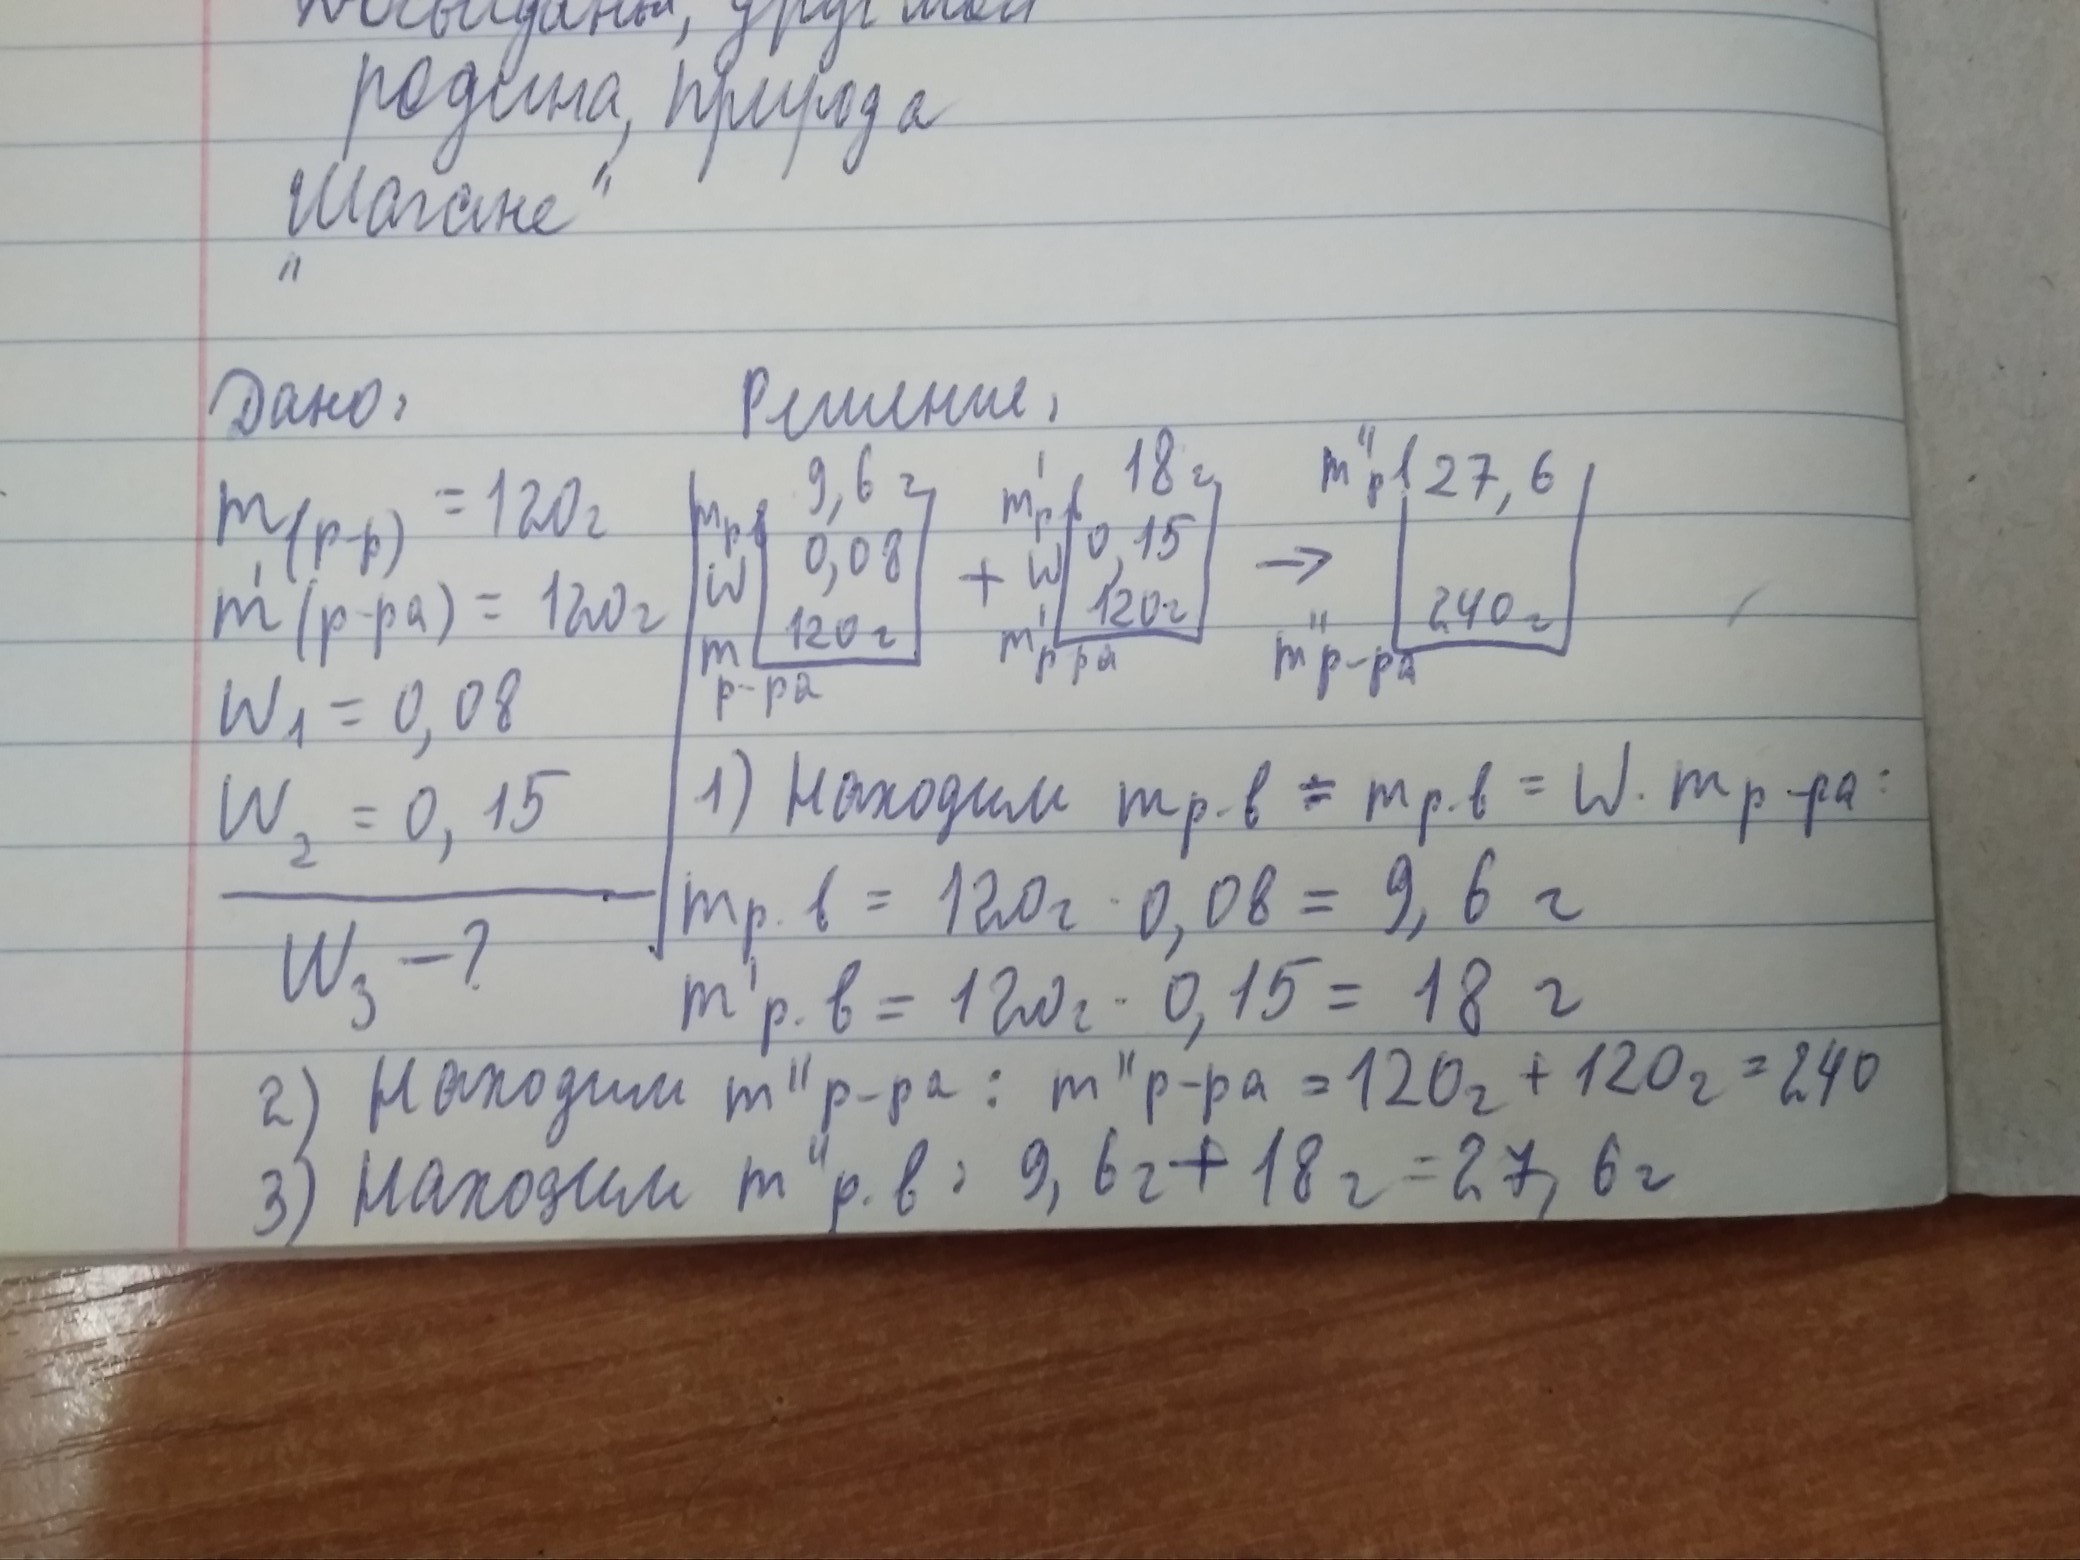 друг мой
родина, природа
Шагане"
"
Дано:
Решение:
m(р-р) = 120г
m'(р-ра) = 120г
W1 = 0,08
W2 = 0,15
W3 - ?
mр.в 9,6 г
W 0,08
m р-ра 120г
+
m'р.в 18 г
W 0,15
m'р-ра 120г
→
m"р.в 27,6
m"р-ра 240г
1) Находим mр.в = mр.в = W · mр-ра:
mр.в = 120г · 0,08 = 9,6 г
m'р.в = 120г · 0,15 = 18 г
2) Находим m"р-ра: m"р-ра = 120г + 120г = 240
3) Находим m"р.в: 9,6г + 18г = 27,6г